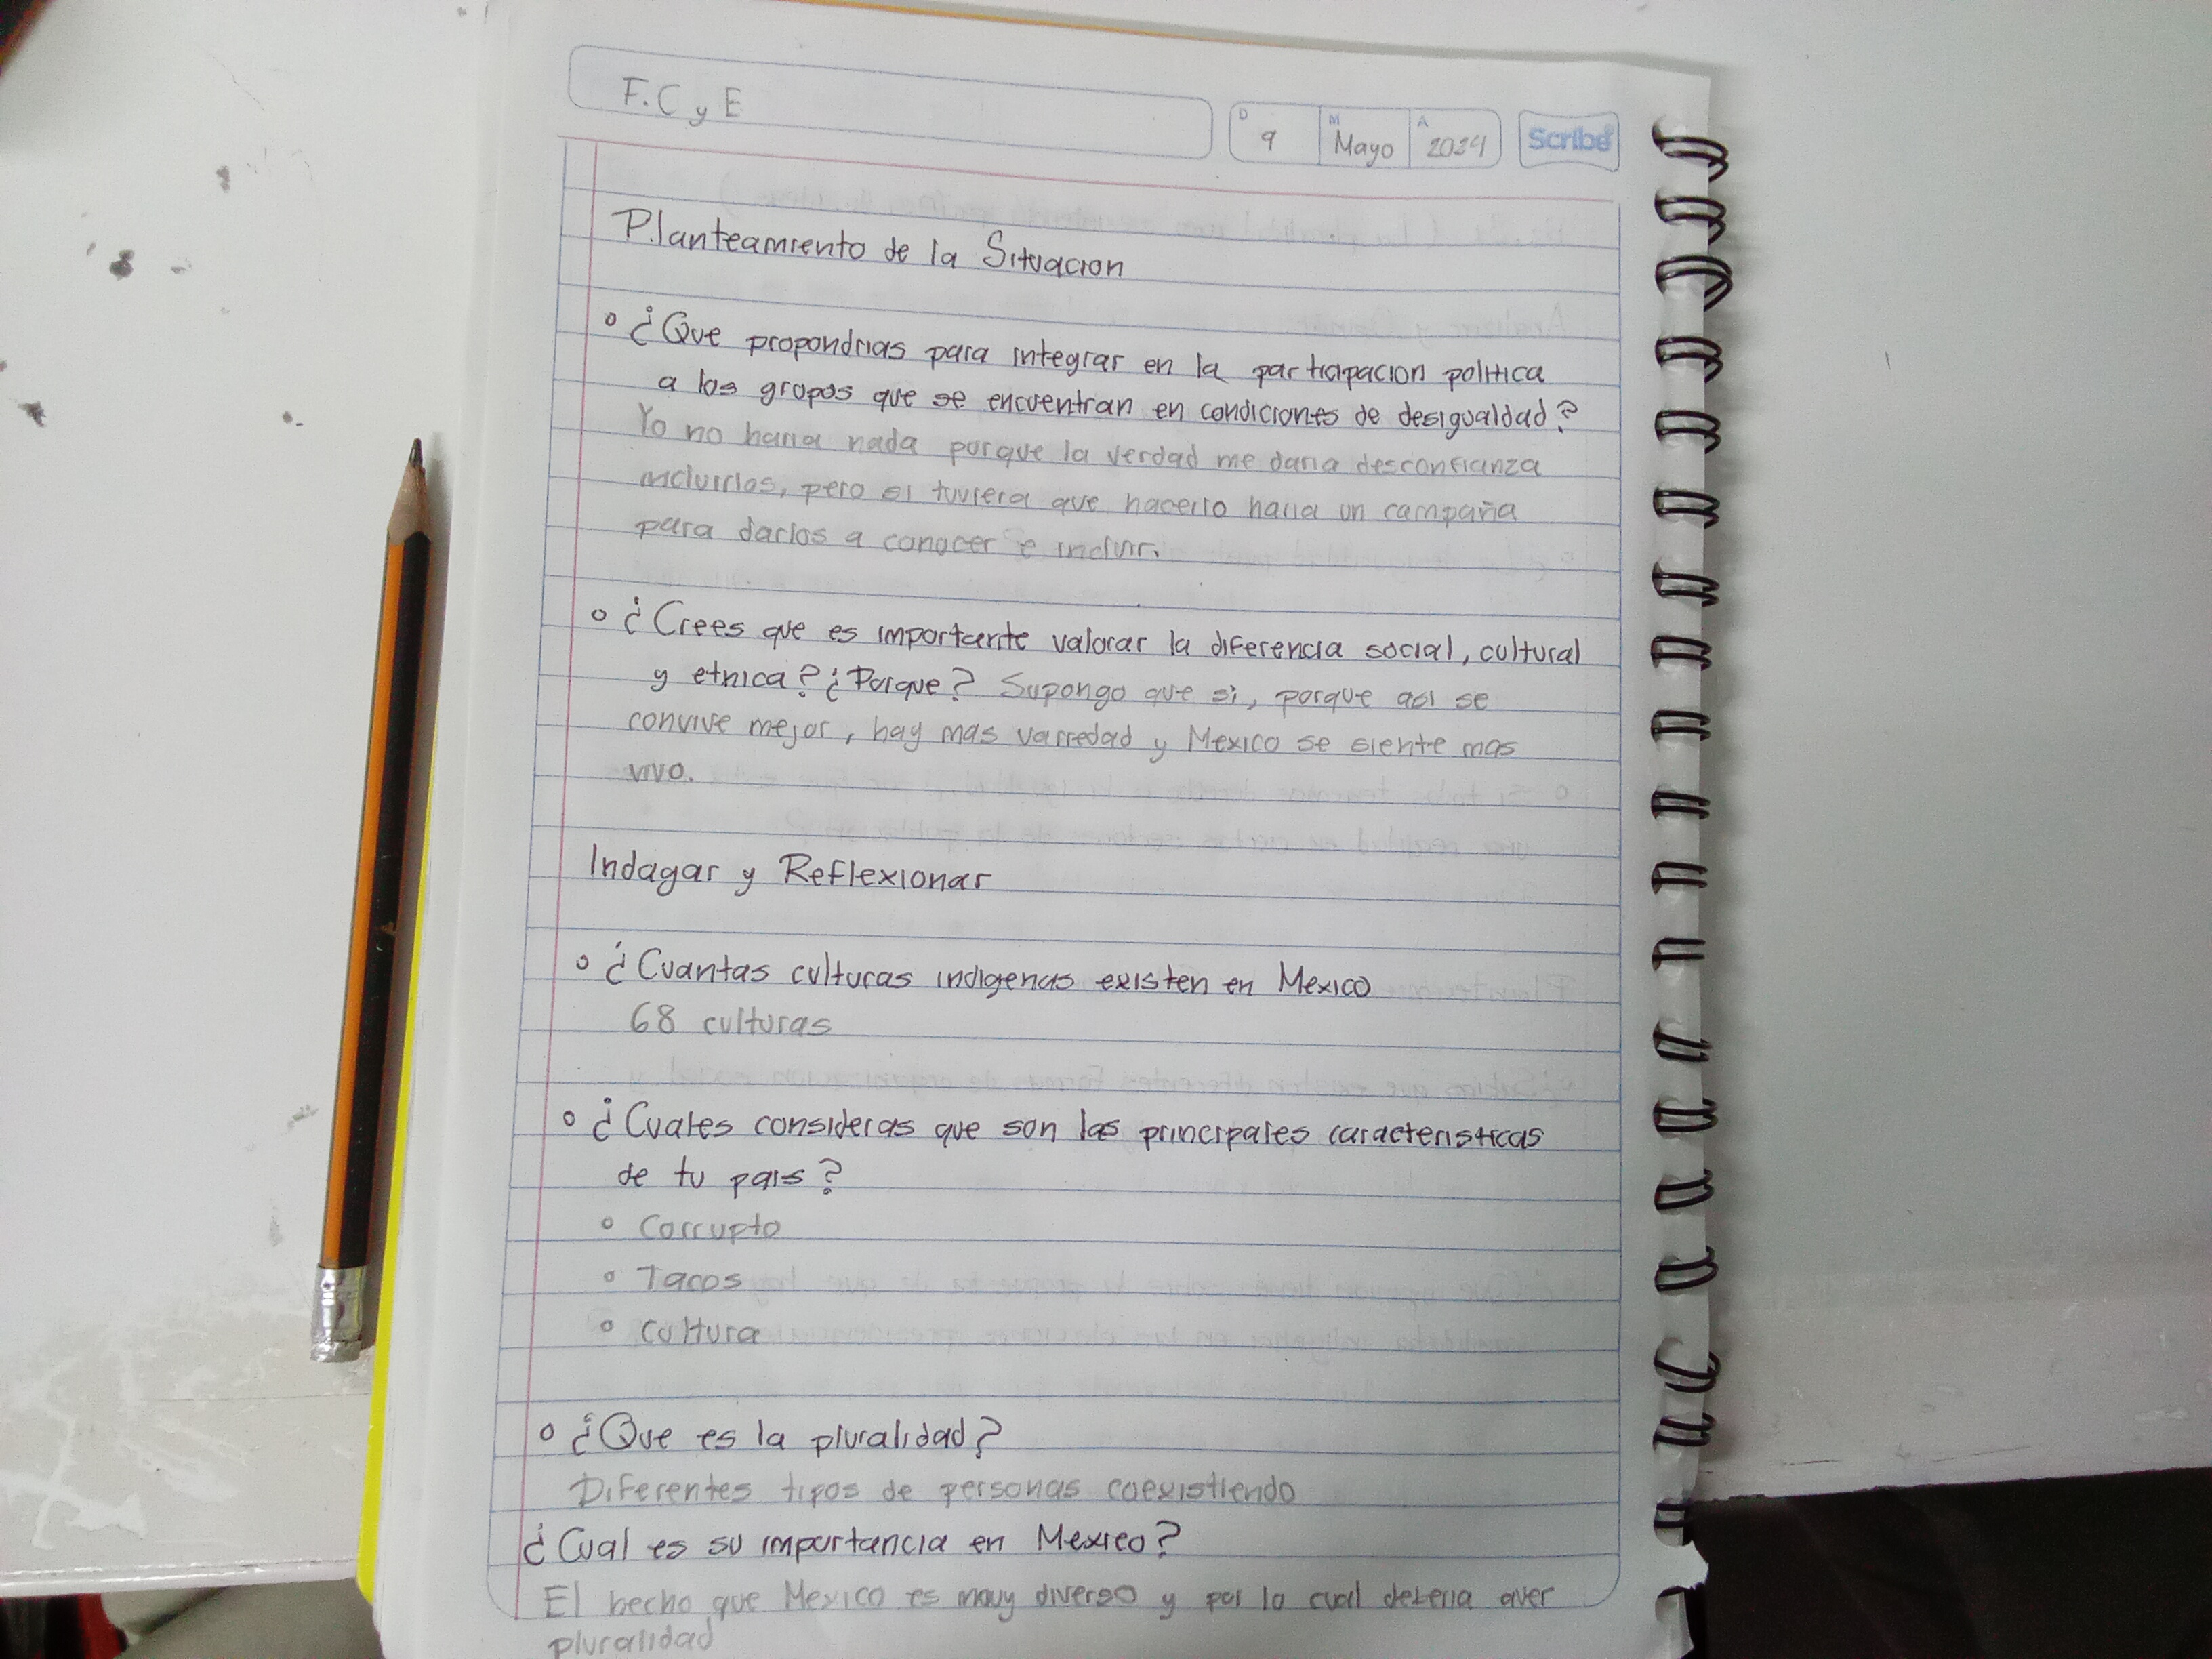 F.C y E
D 9 M Mayo A 2024 Scribe
Planteamiento de la Situacion
¿Que propondrias para integrar en la participacion politica
a los grupos que se encuentran en condiciones de desigualdad?
Yo no haria nada porque la verdad me daria desconfianza
incluirlos, pero si tuviera que hacerlo haria un campaña
para darlos a conocer e incluir.
¿Crees que es importante valorar la diferencia social, cultural
y etnica? ¿Porque? Supongo que si, porque asi se
convive mejor, hay mas varredad y Mexico se siente mas
vivo.
Indagar y Reflexionar
¿Cuantas culturas indigenas existen en Mexico
68 culturas
¿Cuales consideras que son las principales caracteristicas
de tu pais?
Corrupto
Tacos
cultura
¿Que es la pluralidad?
Diferentes tipos de personas coexistiendo
¿Cual es su importancia en Mexico?
El hecho que Mexico es muy diverso y por lo cual deberia aver
pluralidad